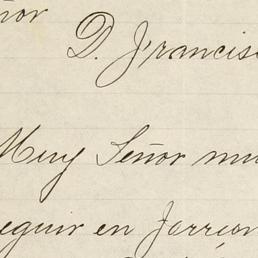 ñor
D. Francisc
Muy Señor mu
eguir en